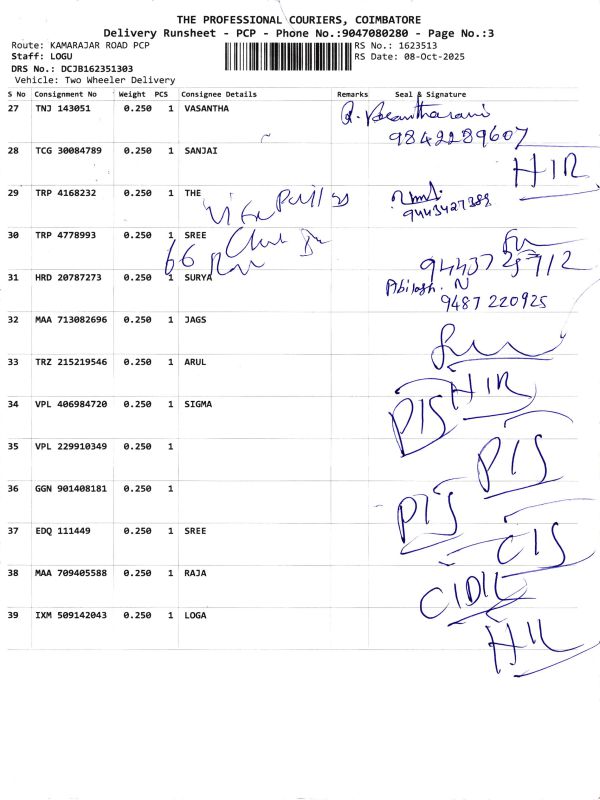 THE PROFESSIONAL COURIERS, COIMBATORE
Delivery Runsheet - PCP - Phone No.:9047080280 - Page No.:3
Route: KAMARAJAR ROAD PCP RS No.: 1623513
Staff: LOGU RS Date: 08-Oct-2025
DRS No.: DCJB162351303
Vehicle: Two Wheeler Delivery
S No Consignment No Weight PCS Consignee Details Remarks Seal & Signature
27 TNJ 143051 0.250 1 VASANTHA
9842289607
28 TCG 30084789 0.250 1 SANJAI
HIR
29 TRP 4168232 0.250 1 THE
9443427388
30 TRP 4778993 0.250 1 SREE
66
31 HRD 20787273 0.250 1 SURYA Abilash. N
9487220925
32 MAA 713082696 0.250 1 JAGS
33 TRZ 215219546 0.250 1 ARUL
HIR
34 VPL 406984720 0.250 1 SIGMA PIS
35 VPL 229910349 0.250 1 PIS
36 GGN 901408181 0.250 1 PIS
37 EDQ 111449 0.250 1 SREE CIS
38 MAA 709405588 0.250 1 RAJA
39 IXM 509142043 0.250 1 LOGA